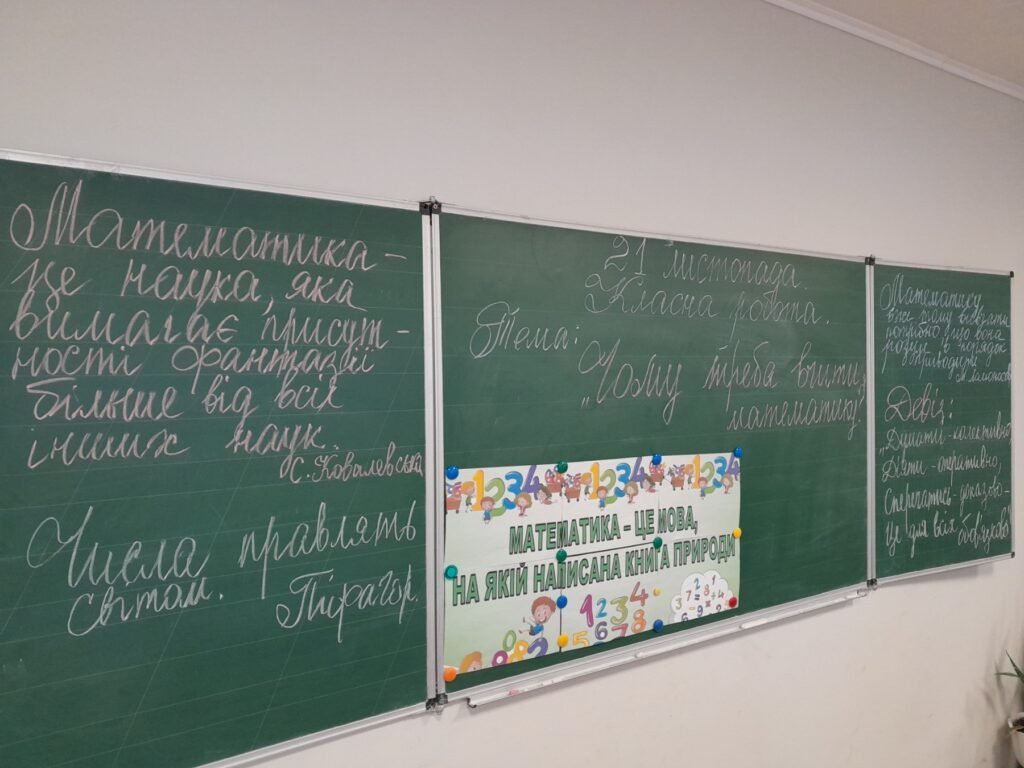 Математика –
це наука, яка
вимагає присут-
ності фантазії
більше від всіх
інших наук.
С. Ковалевська
Числа правлять
світом. Піфагор.
21 листопада
Класна робота.
Тема:
„Чому треба вчити
математику"
1234 1234 1234
МАТЕМАТИКА – ЦЕ МОВА,
НА ЯКІЙ НАПИСАНА КНИГА ПРИРОДИ
1234
5678
Математику
вже тому вивчати
потрібно, що вона
розум в порядок
приводить
М. Ломоносов
Девіз:
„Думати – колективно,
Діяти – оперативно,
Сперечатись – доказово –
Це для всіх обов'язково"